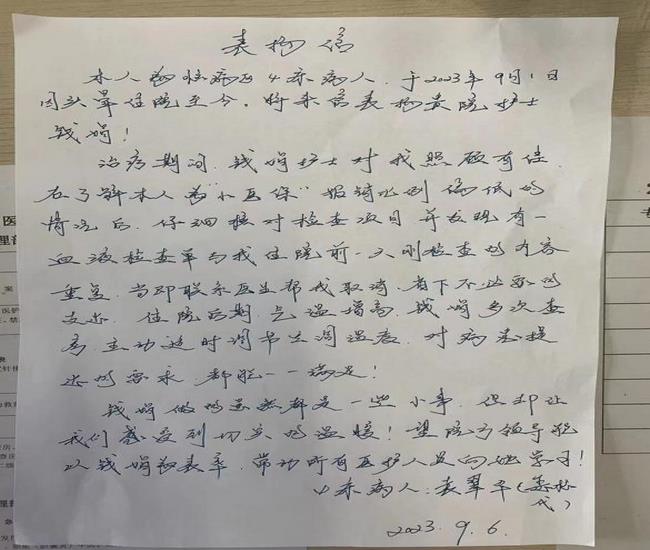 表扬信
本人为 病区4床病人,于2023年9月1日
因头晕住院至今,特来信表扬贵院护士
钱娟!
治疗期间,钱娟护士对我照顾有佳
在了解本人为"小医保"报销比例偏低的
情况后,仔细核对检查项目并发现有一
血液检查单与我住院前一天刚检查的内容
重复,当即联系医生帮我取消,省下不必要的
支出。住院后期,气温增高,钱娟多次查
房,主动适时调节空调温度,对病患提
出的要求,都能一一满足!
钱娟做的虽然都是一些小事,但却让
我们感受到切实的温暖!望院方领导能
以钱娟为表率,带动所有医护人员向她学习!
4床病人:袁翠华(
代)
2023.9.6.
医
理部